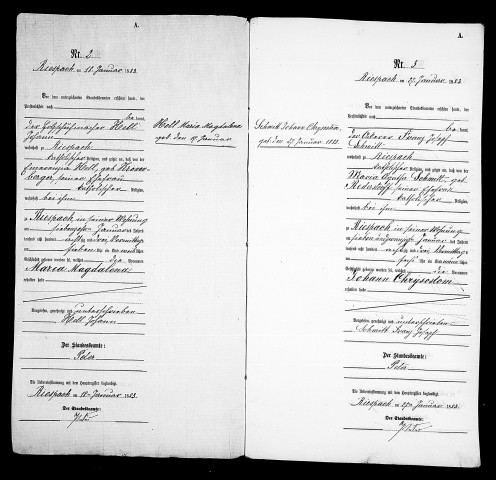 A.
Nr. 2
Riespach, am 18. Januar 1883.
Vor dem unterzeichneten Standesbeamten erschien heute, der
Persönlichkeit nach
bekannt,
der Holzschuhmacher Holl
Johann
wohnhaft zu Riespach
katholischer Religion, und zeigte an, daß von der
Holl, geb.
seiner Ehefrau
katholischer Religion,
wohnhaft bei ihm
zu Riespach in seiner Wohnung
am siebenzehnten Januar des Jahres
tausend acht hundert achtzig und drei Vormittags
um sieben Uhr ein Kind weiblichen
Geschlechts geboren worden sei, welches die Vornamen
Maria Magdalena
erhalten habe
Vorgelesen, genehmigt und unterschrieben
Holl Johann
Der Standesbeamte:
Peter
Die Uebereinstimmung mit dem Hauptregister beglaubigt.
Riespach, am 18ten Januar 1883.
Der Standesbeamte:
Peter
Holl Maria Magdalena
geb. den 17 Januar
Schmitt Johann Chrysostom
geb. den 27 Januar 1883
A.
Nr. 3
Riespach, am 27. Januar 1883.
Vor dem unterzeichneten Standesbeamten erschien heute, der
Persönlichkeit nach
bekannt,
der Ackerer Franz Joseph
Schmitt
wohnhaft zu Riespach
katholischer Religion, und zeigte an, daß von der
Maria Agatha Schmitt, geb.
seiner Ehefrau
katholischer Religion,
wohnhaft bei ihm
zu Riespach in seiner Wohnung
am sieben und zwanzigsten Januar des Jahres
tausend acht hundert achtzig und drei Vormittags
um Uhr ein Kind männlichen
Geschlechts geboren worden sei, welches die Vornamen
Johann Chrysostom
erhalten habe
Vorgelesen, genehmigt und unterschrieben
Schmitt Franz Joseph
Der Standesbeamte:
Peter
Die Uebereinstimmung mit dem Hauptregister beglaubigt.
Riespach, am 27ten Januar 1883.
Der Standesbeamte:
Peter